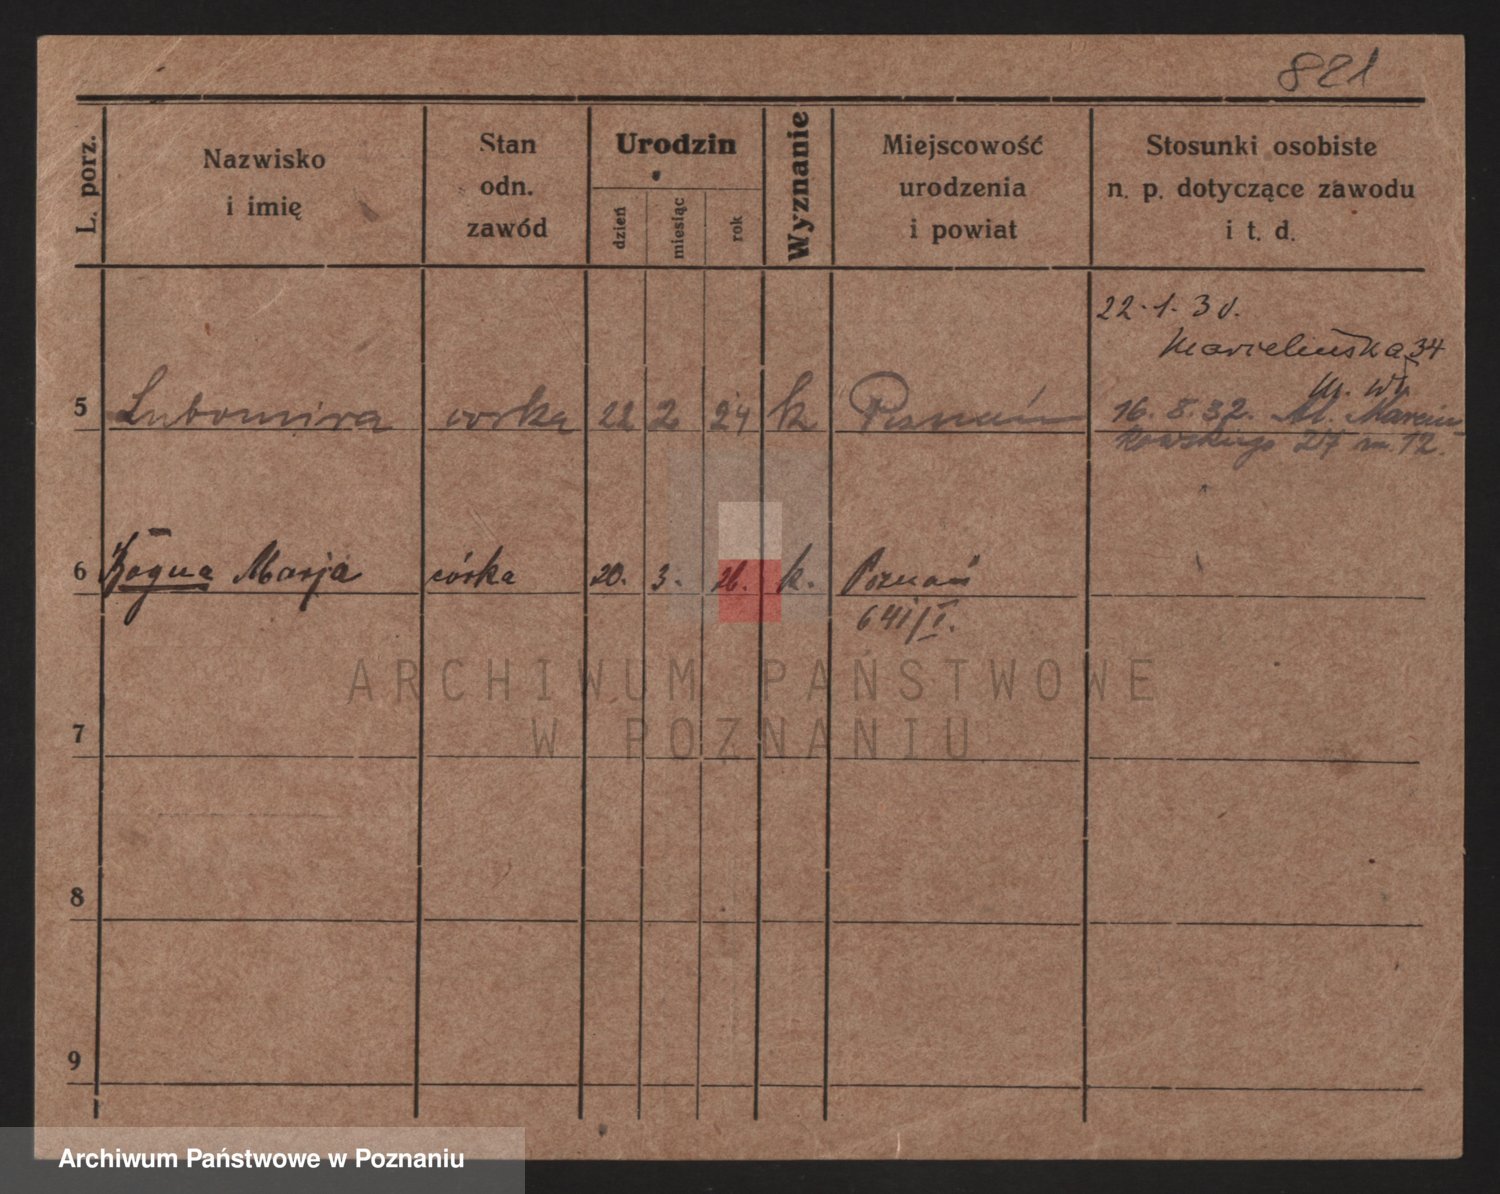 821
L. porz.
Nazwisko
i imię
Stan
odn.
zawód
Urodzin
dzień
miesiąc
rok
Wyznanie
Miejscowość
urodzenia
i powiat
Stosunki osobiste
n. p. dotyczące zawodu
i t. d.
22.1.30.
Marcelińska 34
5 Lubomira córka 22 2 24 k Poznań 16.8.32. Al. Marcin-
kowskiego 27 m. 12.
6 Bogna Marja córka 20. 3. 26. k. Poznań
641/I.
ARCHIWUM PAŃSTWOWE
W POZNANIU
7
8
9
Archiwum Państwowe w Poznaniu